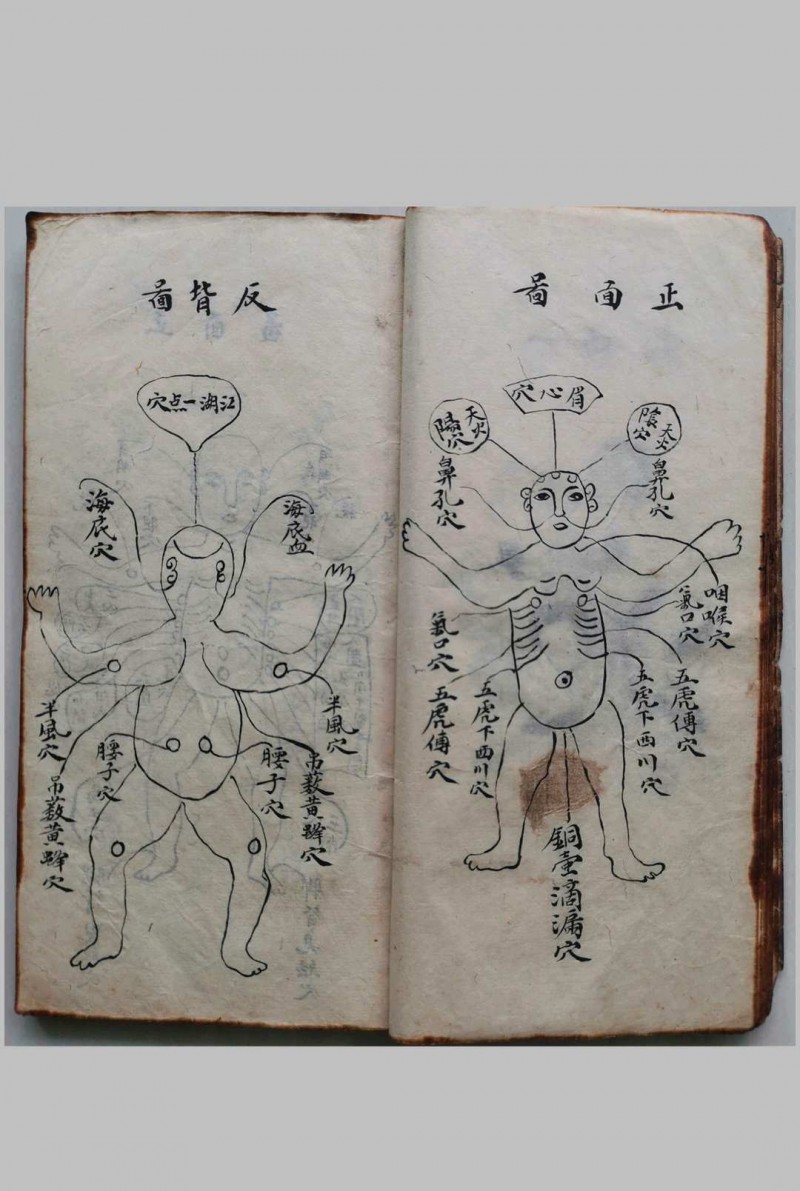 正面啚
眉心穴
天火
陰穴
天火
陰穴
鼻孔穴
鼻孔穴
咽喉穴
氣口穴
氣口穴
五虎傳穴
五虎下西川穴
五虎下西川穴
五虎傳穴
銅壺滴漏穴
反背啚
江湖一点穴
海底血
海底穴
半風穴
半風穴
腰子穴
腰子穴
吊薮黄
穴
吊薮黄
穴